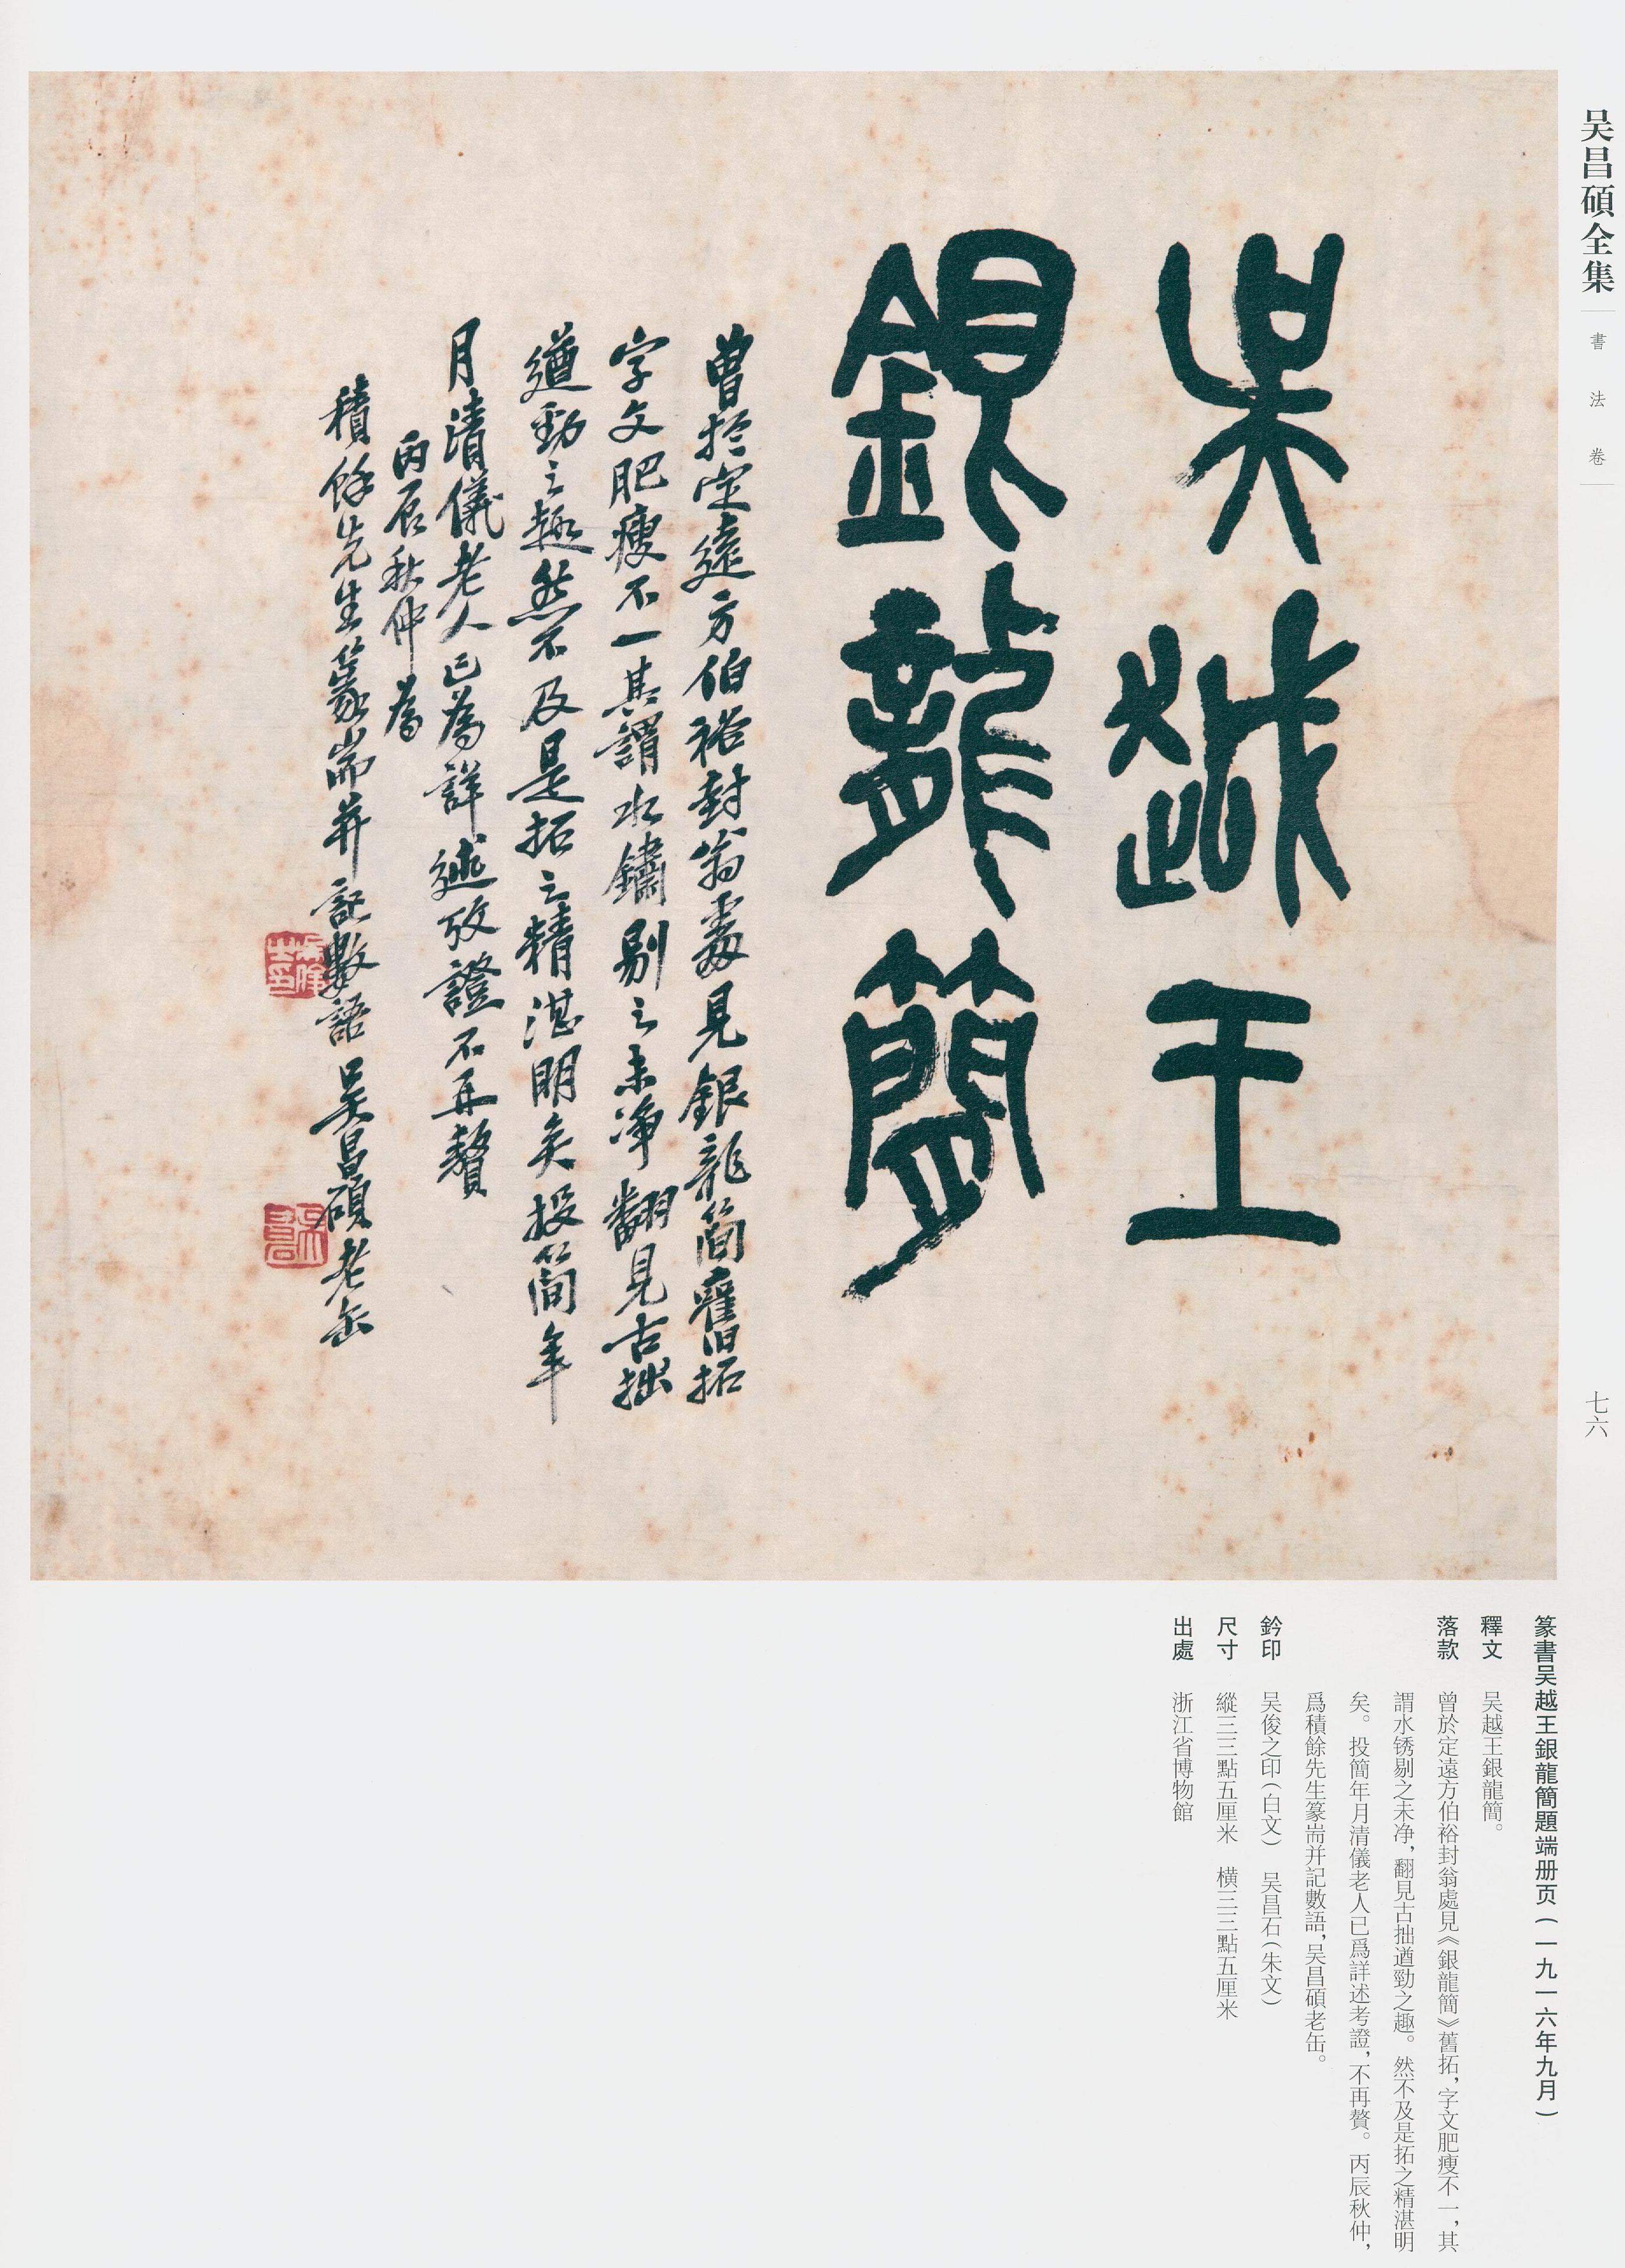 吴昌碩全集
書法卷
七六
吴越王
銀龍簡
曾於定遠方伯裕封翁處見銀龍簡舊拓
字文肥瘦不一其謂水鏽剔之未淨翻見古拙
遒勁之趣然不及是拓之精湛明矣投簡年
月清儀老人已為詳述攷證不再贅
丙辰秋仲為
積餘先生篆耑并記數語吴昌碩老缶
吴俊之印
吴昌石
篆書吴越王銀龍簡題端册页(一九一六年九月)
釋文 吴越王銀龍簡。
落款 曾於定遠方伯裕封翁處見《銀龍簡》舊拓,字文肥瘦不一,其
謂水锈剔之未净,翻見古拙遒勁之趣。然不及是拓之精湛明
矣。投簡年月清儀老人已爲詳述考證,不再贅。丙辰秋仲,
爲積餘先生篆耑并記數語,吴昌碩老缶。
鈐印 吴俊之印(白文) 吴昌石(朱文)
尺寸 縱三三點五厘米 横三三點五厘米
出處 浙江省博物館